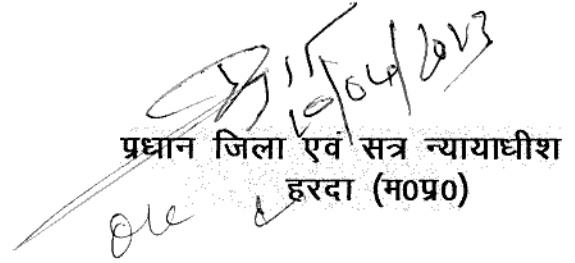 10/04/2023
प्रधान जिला एवं सत्र न्यायाधीश
हरदा (म0प्र0)